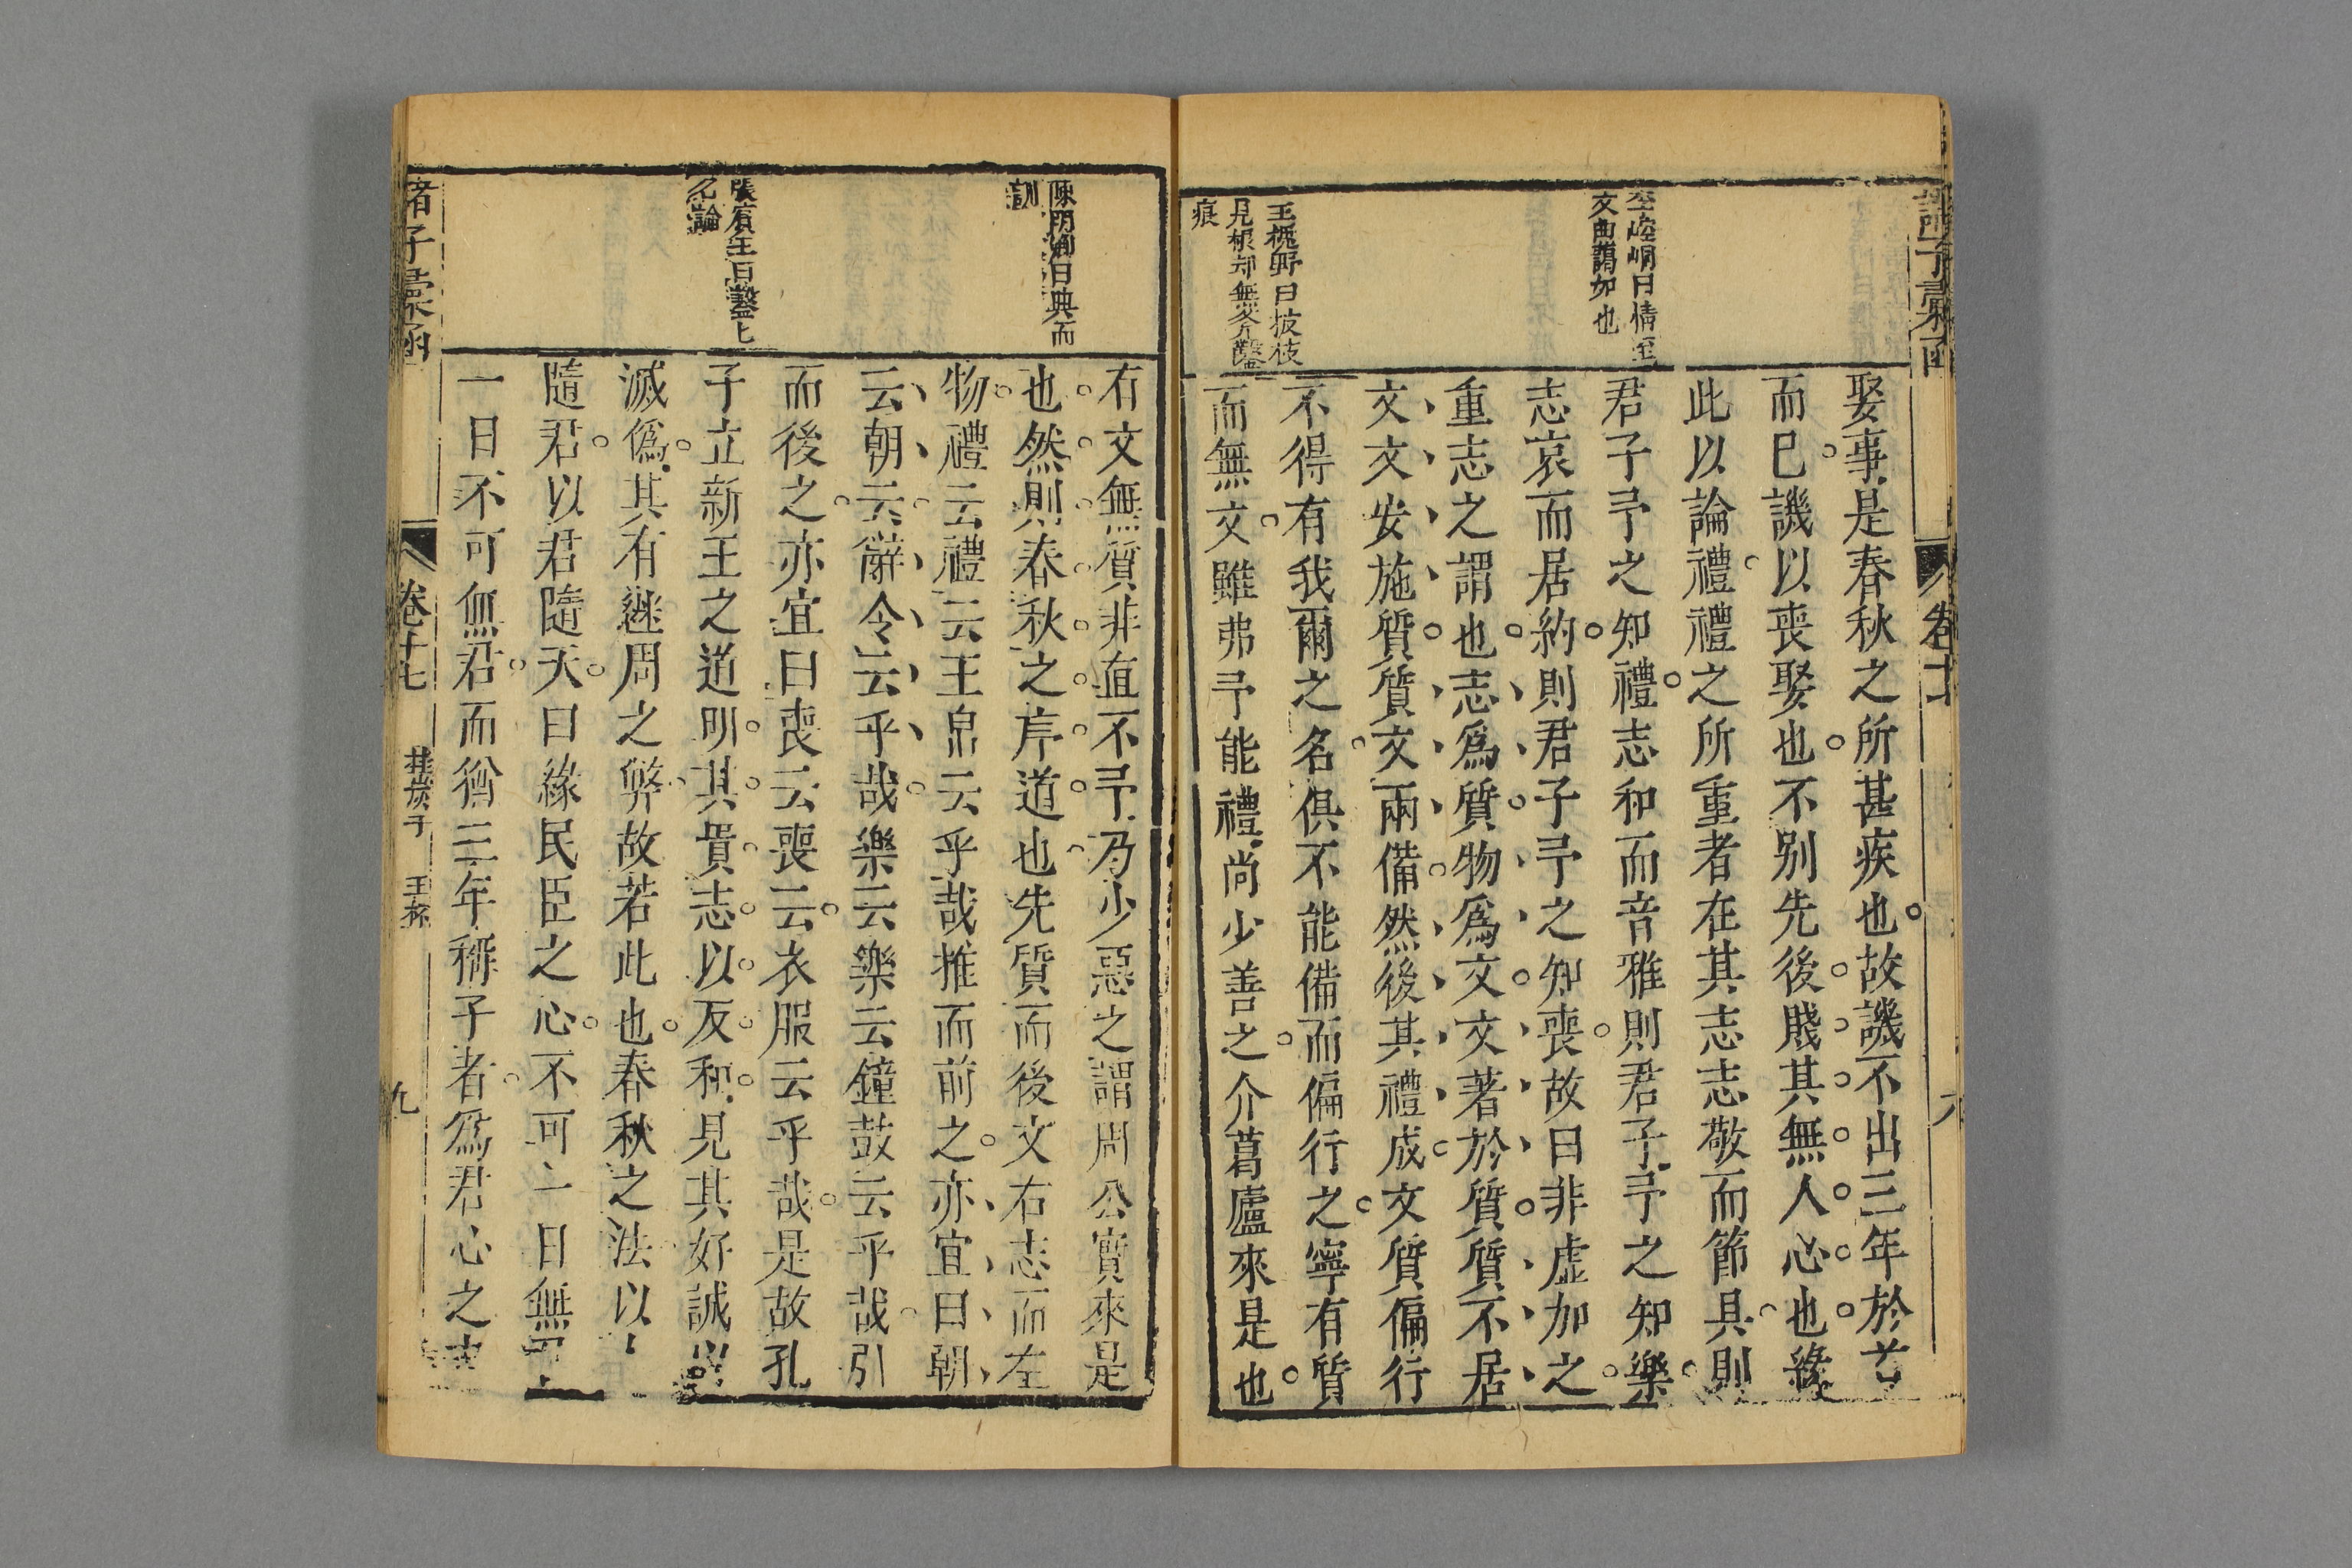 諸子彙函
卷十
李崆峒曰情至
文曲藹如也
王槐野曰披枝
見根却無斧鑿
痕
娶事是春秋之所甚疾也故譏不出三年於
而已譏以喪娶也不别先後賤其無人心也緣
此以論禮禮之所重者在其志志敬而節具則
君子予之知禮志和而音雅則君子予之知樂
志哀而居約則君子予之知喪故曰非虛加之
重志之謂也志爲質物爲文文著於質質不居
文文安施質質文兩備然後其禮成文質偏行
不得有我爾之名俱不能備而偏行之寧有質
而無文雖弗予能禮尚少善之介葛廬來是也
陳明卿曰典而
訓
張賓王曰鑿上
名論
有文無質非直不予乃少惡之謂周公寔來是
也然則春秋之序道也先質而後文右志而左
物禮云禮云玉帛云乎哉推而前之亦宜曰朝
云朝云辭令云乎哉樂云樂云鐘鼓云乎哉引
而後之亦宜曰喪云喪云衣服云乎哉是故孔
子立新王之道明其貴志以反和見其好誠以
滅僞其有繼周之弊故若此也春秋之法以
隨君以君隨天曰緣民臣之心不可一日無
一日不可無君而猶三年稱子者爲君心之
諸子彙函
卷十七
桂巖子
玉杯
九